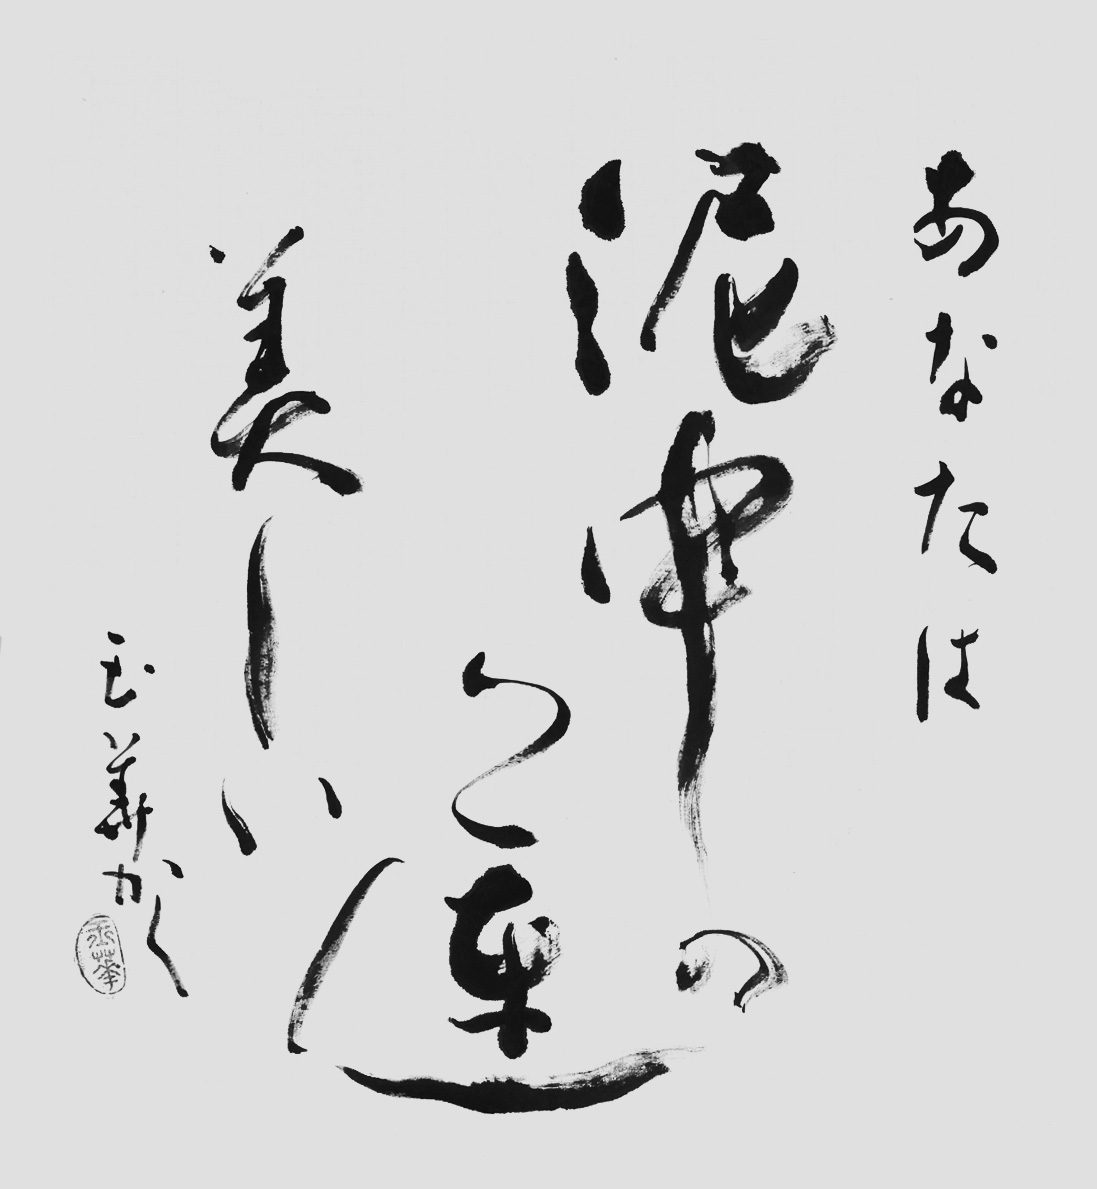 あなたは
泥中の
蓮
美しい
玉華かく
玉華